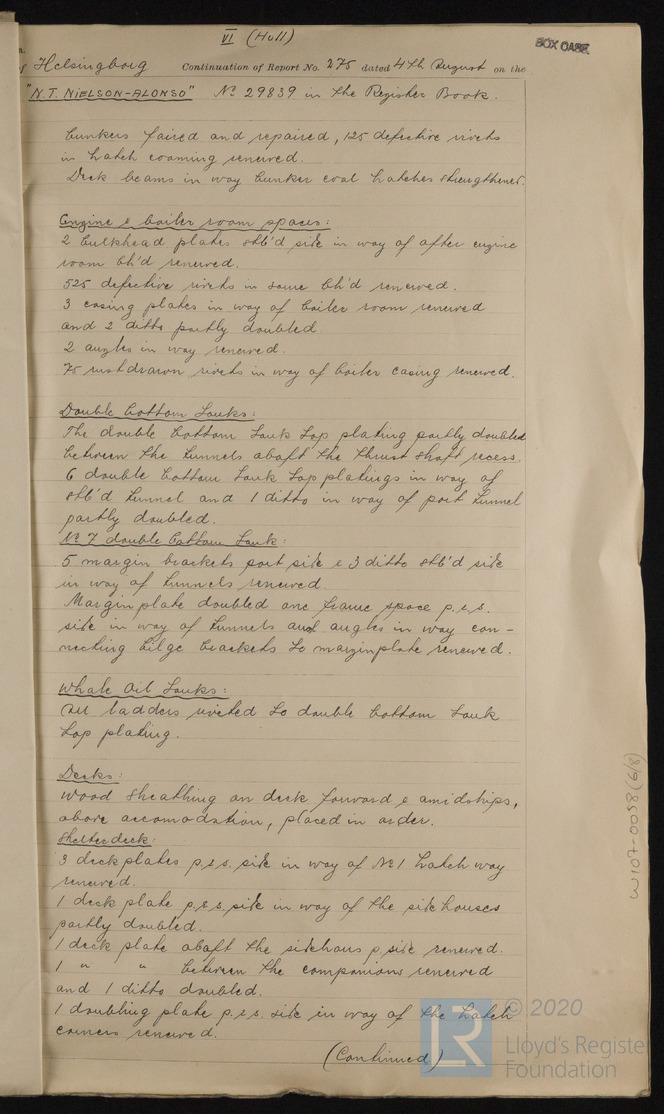 VI (Hull)
BOX CASE
Helsingborg Continuation of Report No. 275 dated 4th August on the
"N.T. NIELSON-ALONSO" No 29839 in the Register Book.
bunkers faired and repaired, 125 defective rivets
in hatch coaming renewed.
Deck beams in way bunker coal hatches strengthened.
Engine & boiler room spaces:
2 bulkhead plates stb'd side in way of after engine
room bh'd renewed.
525 defective rivets in same bh'd renewed.
3 casing plates in way of boiler room renewed
and 2 ditto partly doubled
2 angles in way renewed.
75 rustdrawn rivets in way of boiler casing renewed.
Double bottom tanks:
The double bottom tank top plating partly doubled
between the tunnels abaft the thrust shaft recess.
6 double bottom tank top platings in way of
stb'd tunnel and 1 ditto in way of port tunnel
partly doubled.
No 7 double bottom tank:
5 margin brackets port side & 3 ditto stb'd side
in way of tunnels renewed.
Margin plate doubled one frame space p.&s.
side in way of tunnels and angles in way con-
necting bilge brackets to marginplate renewed.
Whale Oil Tanks:
All ladders riveted to double bottom tank
top plating.
Decks:
Wood sheathing on deck forward & amidships,
above accomodation, placed in order.
Shelterdeck:
3 deckplates p.&s. side in way of No 1 hatch way
renewed.
1 deck plate p.&s. side in way of the sidehouses
partly doubled.
1 deck plate abaft the sidehaus p. side renewed.
1 " " between the companions renewed
and 1 ditto doubled.
1 doubling plate p.&s. side in way of the hatch
corners renewed.
(Continued)
W107-0058 (6/8)
LR
© 2020
Lloyd's Register
Foundation